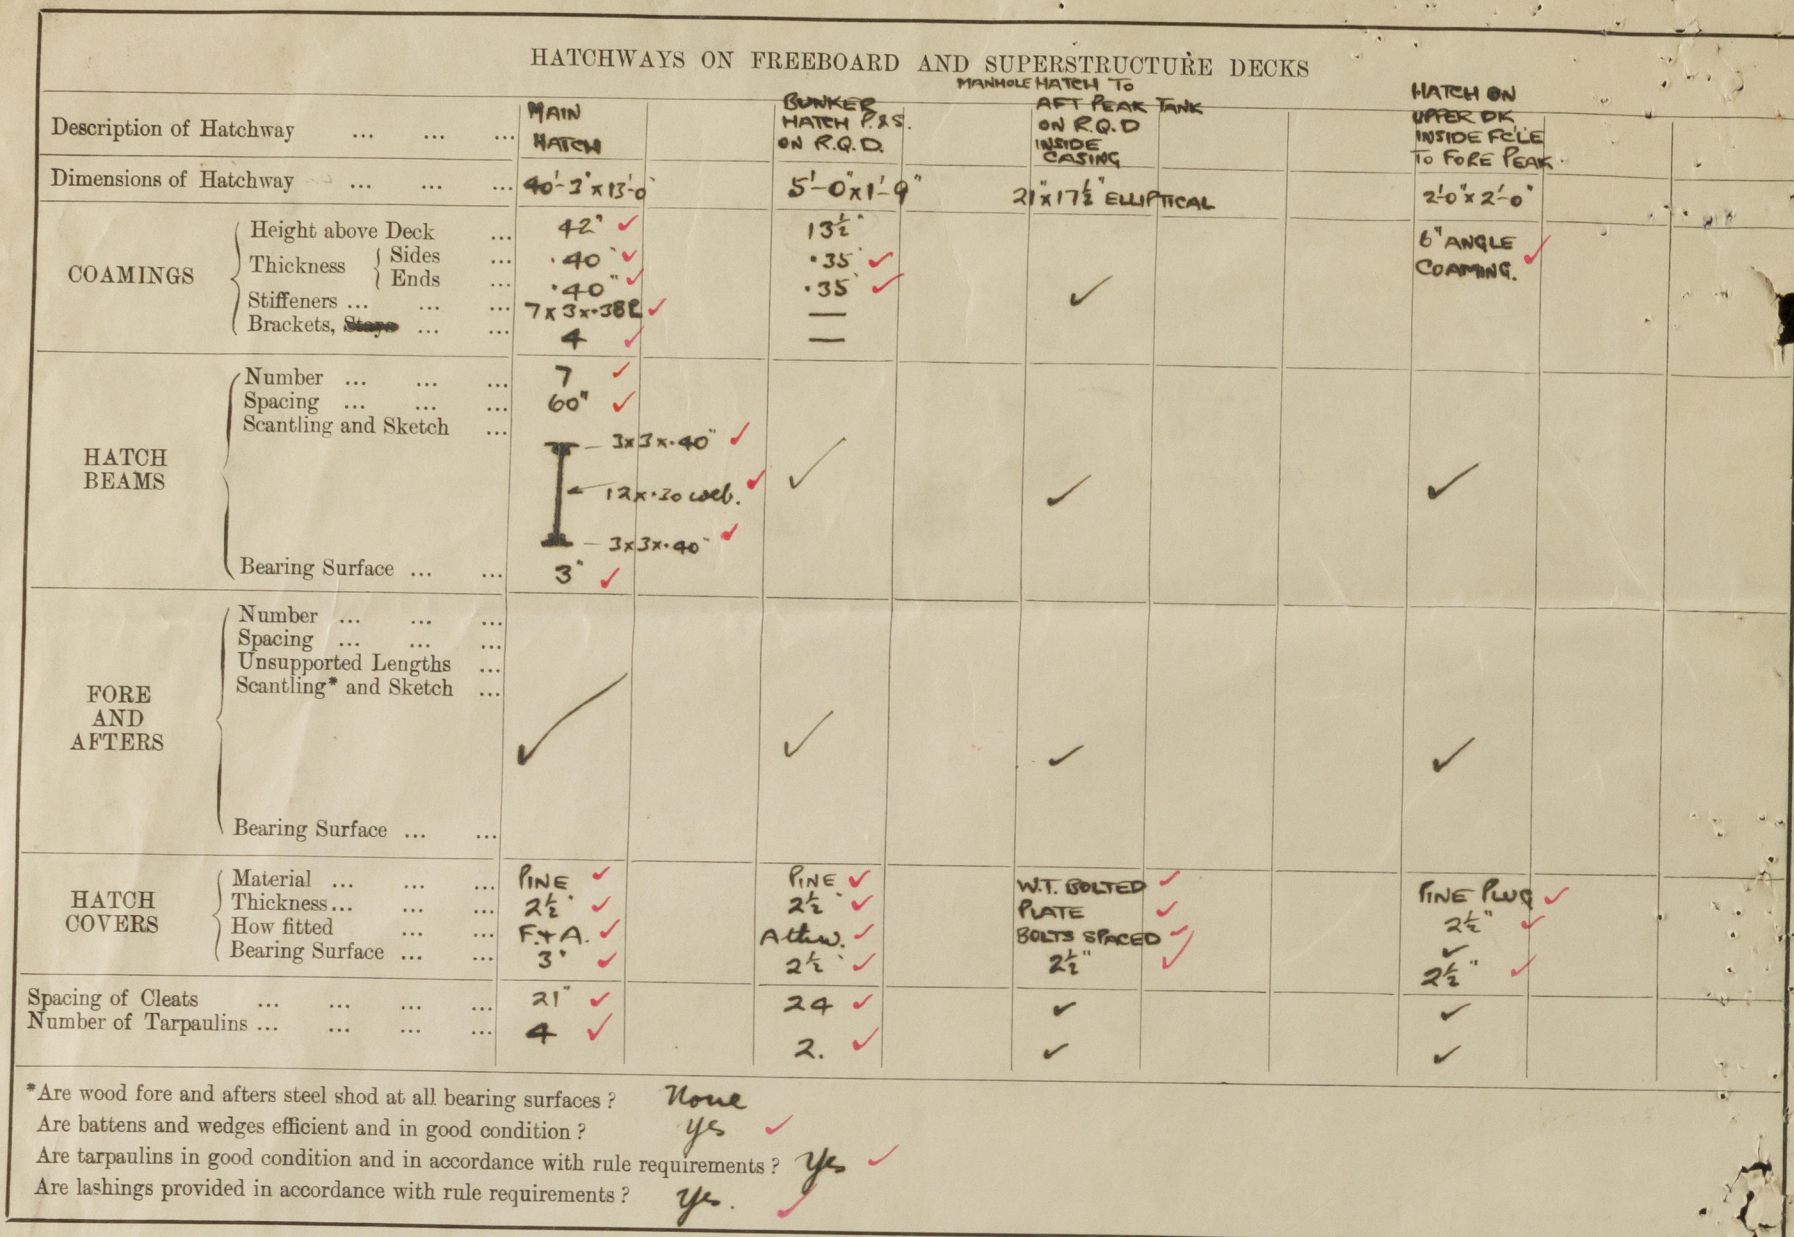 HATCHWAYS ON FREEBOARD AND SUPERSTRUCTURE DECKS
Description of Hatchway ... ... ...
MAIN
HATCH
BUNKER
HATCH P.&S.
ON R.Q.D.
MANHOLE HATCH TO
AFT PEAK TANK
ON R.Q.D
INSIDE
CASING
HATCH ON
UPPER DK
INSIDE FC'LE
TO FORE PEAK.
Dimensions of Hatchway ... ... ... 40'-3"x13'-0" 5'-0"x1'-9" 21"x17½" ELLIPTICAL 2'-0"x2'-0"
COAMINGS
Height above Deck ... 42" ✓ 13½"
Thickness
Sides ... .40" ✓ .35" ✓
Ends ... .40" ✓ .35" ✓ ✓
6" ANGLE ✓
COAMING.
Stiffeners ... ... ... 7x3x.38 ✓ —
Brackets, Stays ... ... 4 ✓ —
HATCH
BEAMS
Number ... ... ... 7 ✓
Spacing ... ... ... 60" ✓
Scantling and Sketch ...
3x3x.40" ✓
12x.30 web. ✓
3x3x.40" ✓
✓ ✓ ✓
Bearing Surface ... ... 3" ✓
FORE
AND
AFTERS
Number ... ... ...
Spacing ... ... ...
Unsupported Lengths ...
Scantling* and Sketch ...
✓ ✓ ✓ ✓
Bearing Surface ... ...
HATCH
COVERS
Material ... ... ... PINE ✓ PINE ✓ W.T. BOLTED ✓ PINE PLUG ✓
Thickness... ... ... 2½" ✓ 2½" ✓ PLATE ✓ 2½" ✓
How fitted ... ... F.&A. ✓ Athw. ✓ BOLTS SPACED ✓ ✓
Bearing Surface ... ... 3" ✓ 2½" ✓ 2½" ✓ 2½" ✓
Spacing of Cleats ... ... ... ... 21" ✓ 24 ✓ ✓ ✓
Number of Tarpaulins ... ... ... ... 4 ✓ 2. ✓ ✓ ✓
*Are wood fore and afters steel shod at all bearing surfaces ? None
Are battens and wedges efficient and in good condition ? yes ✓
Are tarpaulins in good condition and in accordance with rule requirements ? Yes ✓
Are lashings provided in accordance with rule requirements ? Yes. ✓